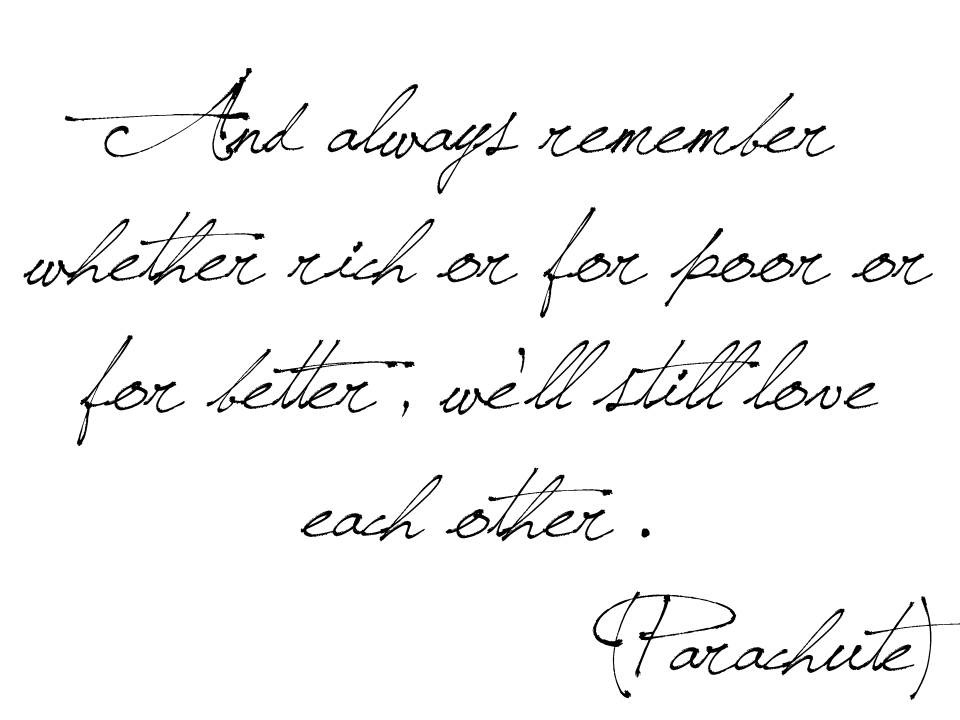 And always remember
whether rich or for poor or
for better, we'll still love
each other.
(Parachute)